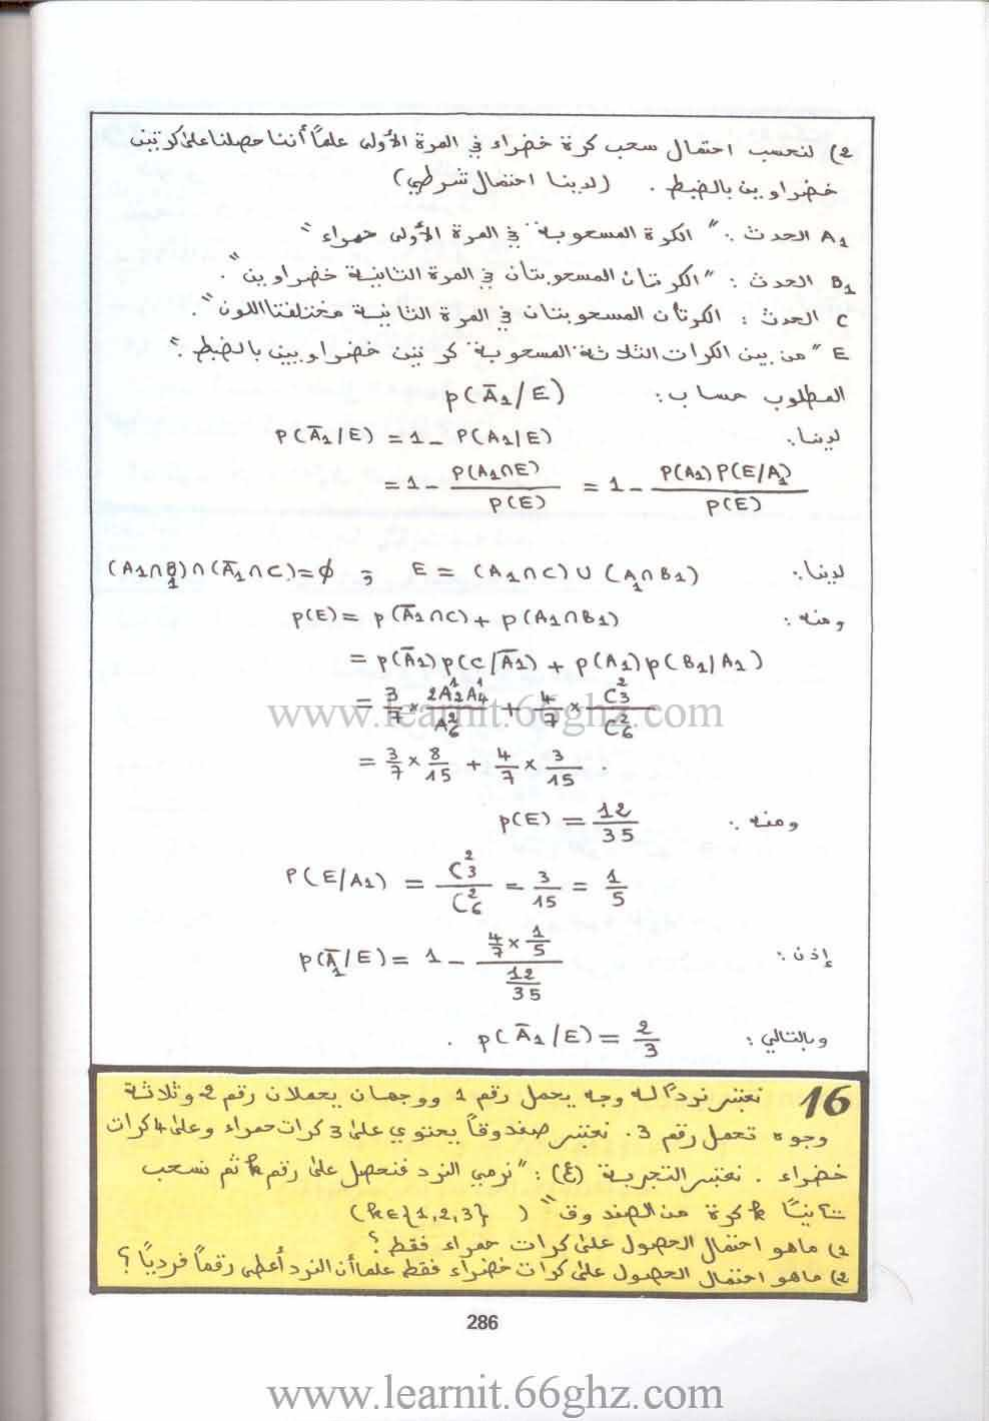 2) لنحسب احتمال سحب كرة خضراء في المرة الأولى علماً أننا حصلنا على كرتين
خضراوين بالضبط . (لدينا احتمال شرطي)
A₁ الحدث : " الكرة المسحوبة في المرة الأولى حمراء "
B₁ الحدث : "الكرتان المسحوبتان في المرة الثانية خضراوين" .
C الحدث : الكرتان المسحوبتان في المرة الثانية مختلفتا اللون" .
E "من بين الكرات الثلاثة المسحوبة كرتين خضراويين بالضبط ."
المطلوب حساب : p(Ā₁/E)
لدينا : P(Ā₁/E) = 1 - P(A₁/E)
= 1 - P(A₁∩E)/P(E) = 1 - P(A₁)P(E/A₁)/P(E)
لدينا : E = (A₁∩C)∪(A₁∩B₁) و (A₁∩B₁)∩(Ā₁∩C)=∅
ومنه : p(E) = p(Ā₁∩C) + p(A₁∩B₁)
= p(Ā₁)p(C/Ā₁) + p(A₁)p(B₁/A₁)
= 3/7 × 2A¹₂A¹₄/A²₆ + 4/7 × C²₃/C²₆
www.learnit.66ghz.com
= 3/7 × 8/15 + 4/7 × 3/15 .
ومنه : p(E) = 12/35
P(E/A₁) = C²₃/C²₆ = 3/15 = 1/5
إذن : p(Ā₁/E) = 1 - (4/7 × 1/5)/(12/35)
وبالتالي : p(Ā₁/E) = 2/3 .
16 نعتبر نرداً له وجه يحمل رقم 1 ووجهان يحملان رقم 2 وثلاثة
وجوه تحمل رقم 3. نعتبر صندوقاً يحتوي على 3 كرات حمراء وعلى 4 كرات
خضراء . نعتبر التجربة (ξ) : "نرمي النرد فنحصل على رقم k ثم نسحب
تانياً k كرة من الصندوق" (k∈{1,2,3})
1) ماهو احتمال الحصول على كرات حمراء فقط ؟
2) ماهو احتمال الحصول على كرات خضراء فقط علماً أن النرد أعطى رقماً فردياً ؟
286
www.learnit.66ghz.com